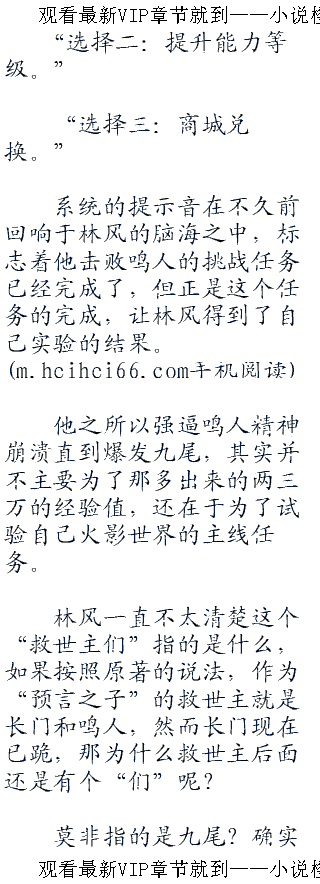 观看最新VIP章节就到——小说
“选择二：提升能力等
级。”
“选择三：商城兑
换。”
系统的提示音在不久前
回响于林风的脑海之中，标
志着他击败鸣人的挑战任务
已经完成了，但正是这个任
务的完成，让林风得到了自
己实验的结果。
(m.hcihci66.com手机阅读)
他之所以强逼鸣人精神
崩溃直到爆发九尾，其实并
不主要为了那多出来的两三
万的经验值，还在于为了试
验自己火影世界的主线任
务。
林风一直不太清楚这个
“救世主们”指的是什么，
如果按照原著的说法，作为
“预言之子”的救世主就是
长门和鸣人，然而长门现在
已跪，那为什么救世主后面
还是有个“们”呢？
莫非指的是九尾？确实
观看最新VIP章节就到——小说